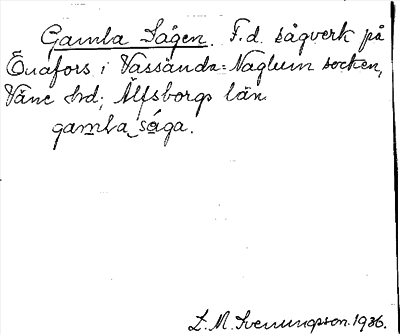 Gamla Sågen. F.d. sågverk på
Önafors i Vassända-Naglum socken,
Väne hd; Älfsborgs län
gamla såga.
L. M. Svenungsson. 1936.